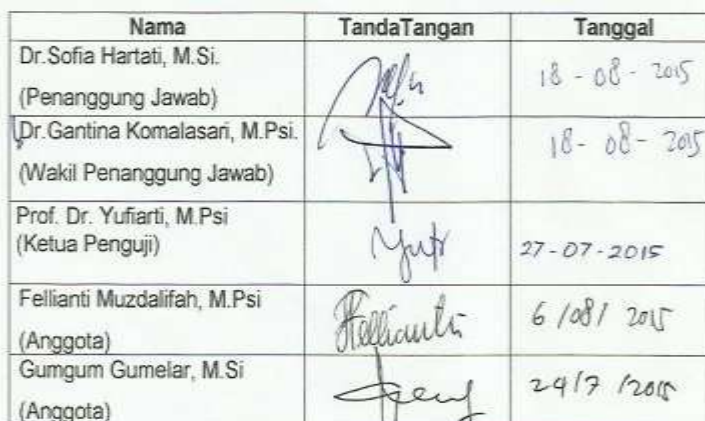 Nama TandaTangan Tanggal
Dr.Sofia Hartati, M.Si.
(Penanggung Jawab)
18 - 08 - 2015
Dr.Gantina Komalasari, M.Psi.
(Wakil Penanggung Jawab)
18 - 08 - 2015
Prof. Dr. Yufiarti, M.Psi
(Ketua Penguji)
27-07-2015
Fellianti Muzdalifah, M.Psi
(Anggota)
Fellianti
6 /08/ 2015
Gumgum Gumelar, M.Si
(Anggota)
24/7 /2015